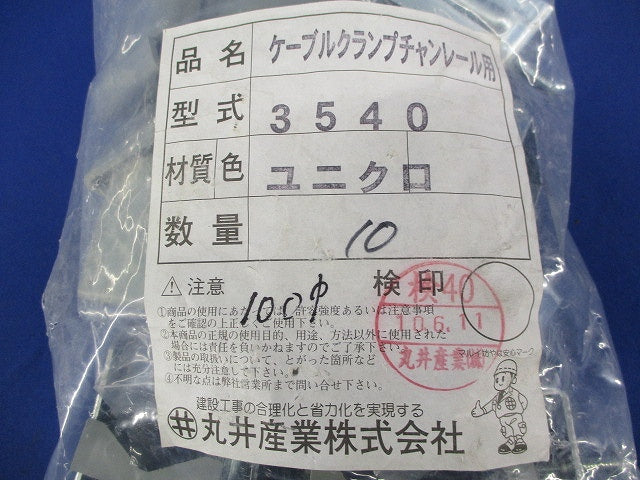 品名 ケーブルクランプチャンレール用
型式 3540
材質色 ユニクロ
数量 10
⚠注意 検印
100φ
①商品の使用にあたっては、許容強度あるいは注意事項
をご確認の上正しくご使用下さい。
②本商品の正規の使用目的、用途、方法以外に使用された
場合には責任を負いかねますのでご了承下さい。
③製品の取扱いについて、とがった箇所など
には充分注意して下さい。
④不明な点は弊社営業所まで問い合せ下さい。
検40
6.11
丸井産業㈱
マルイ坊やは安心マーク
建設工事の合理化と省力化を実現する
丸井産業株式会社